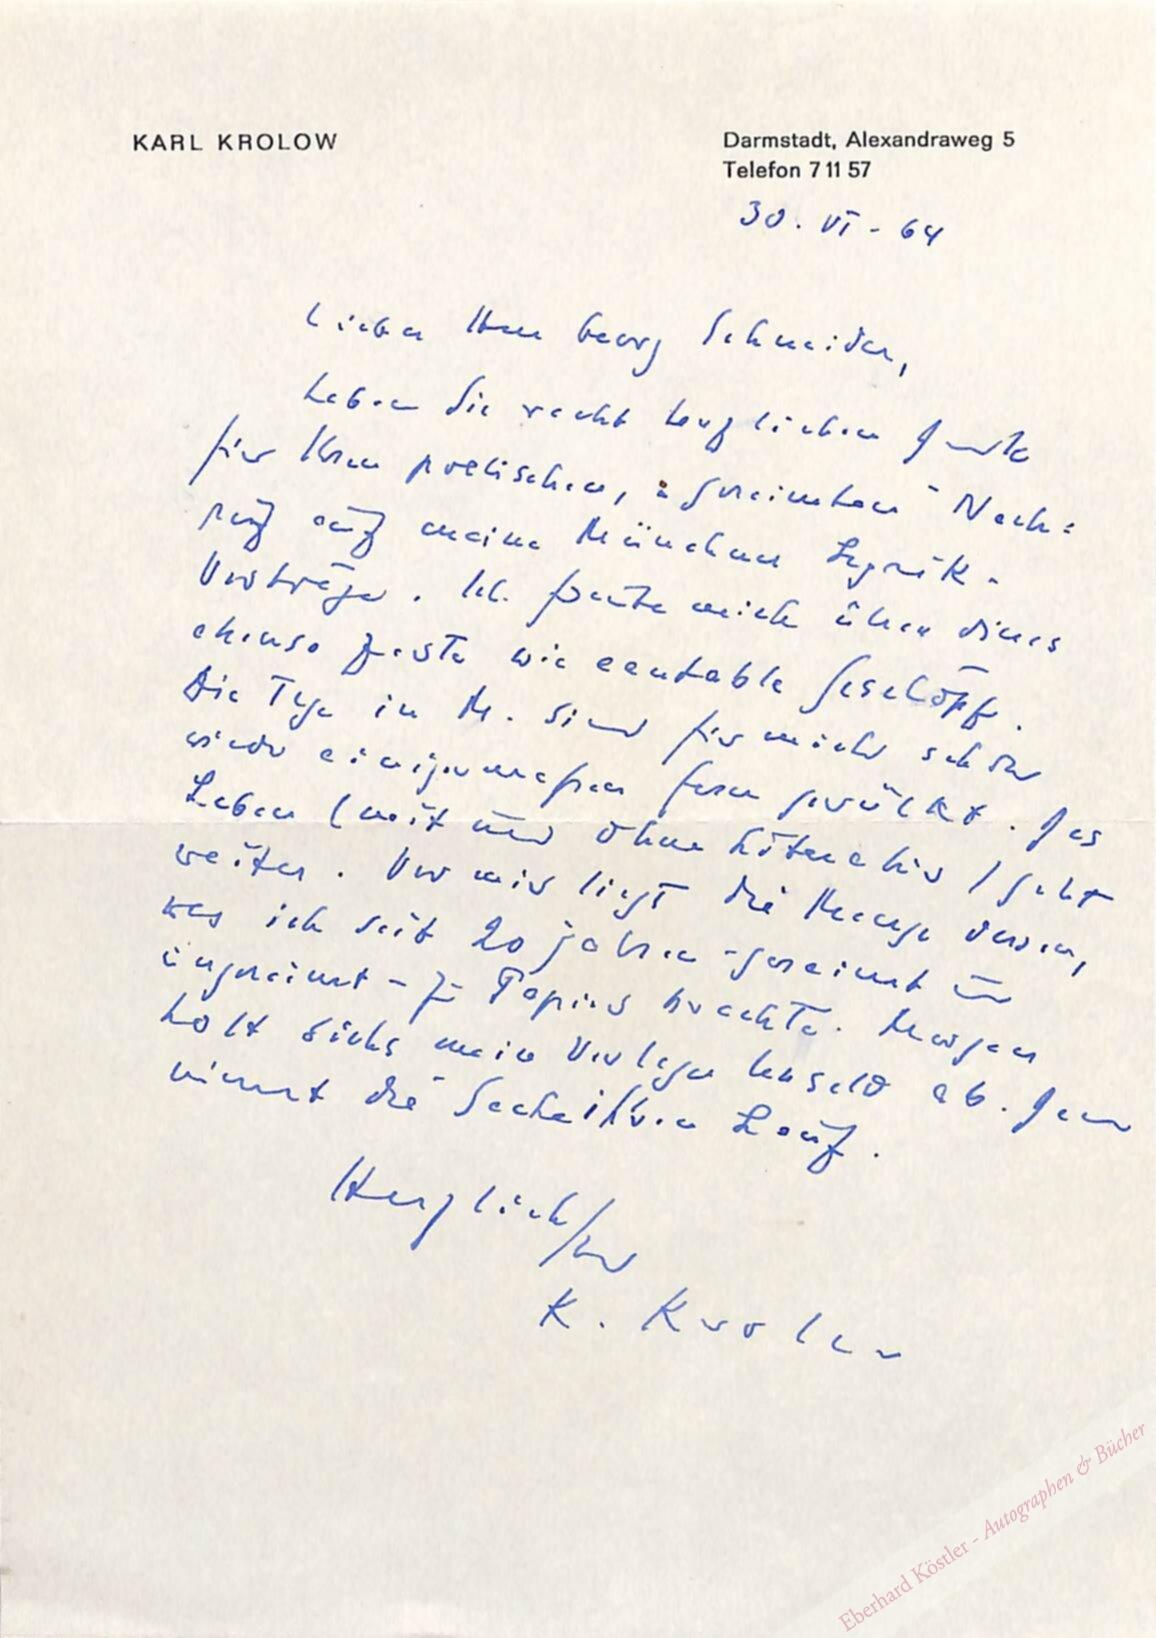 KARL KROLOW
Darmstadt, Alexandraweg 5
Telefon 7 11 57
30. VI - 64
Lieber Herr Georg Schneider,
haben Sie recht herzlichen Dank
für Ihren poetischen, "gereimten" Nach=
ruf auf meine Münchner Lyrik-
Vorträge. Ich freute mich über dieses
ebenso zarte wie Geschöpf.
Die Tage in M. sind für mich schon
wieder einigermaßen fern gerückt. Das
Leben (mit und ohne Literatur) geht
weiter. Vor mir liegt die Menge dessen,
was ich seit 20 Jahren - gereimt und
ungereimt - zu Papier brachte. Morgen
holt sichs mein Verleger Unseld ab. Dann
nimmt die Sache ihren Lauf.
Herzlich/Ihr
K. Krolow
Eberhard Köstler - Autographen & Bücher